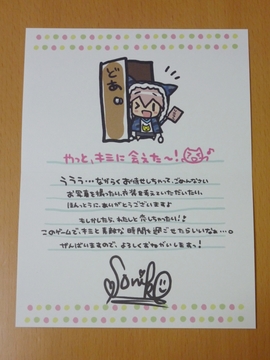 どあ。
やっと、キミに会えた〜!
ううう…ながらくお待せしちゃって、ごめんなさい
お写真を撮ったり、衣装を考えていただいたり、
ほんっとうに、ありがとうございます♪
もしかしたら、わたしと 恋しちゃったり!?
このゲームで、キミと素敵な時間を過ごせたらいいなぁ…。
がんばりますので、よろしくおねがいしまーっす!
Soniko